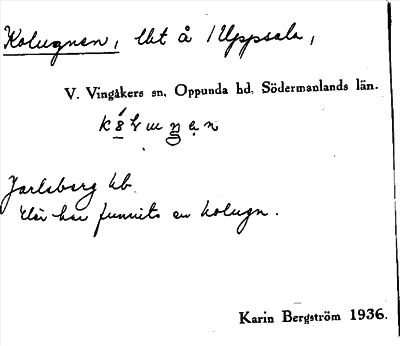 Kolugnen, lht å Uppsala,
V. Vingåkers sn, Oppunda hd, Södermanlands län.
Jarlsberg kb.
där har funnits en kolugn.
Karin Bergström 1936.